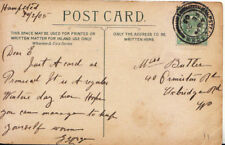 Hampsted
POST CARD.
THIS SPACE MAY BE USED FOR PRINTED OR
WRITTEN MATTER FOR INLAND USE ONLY
ONLY THE ADDRESS TO BE
WRITTEN HERE.
Dear E
Just A card as
Promised It is A regular
Winters day here Hope
you can manage to keep
yourself warm
Miss Butler
40
Uxbridge Rd